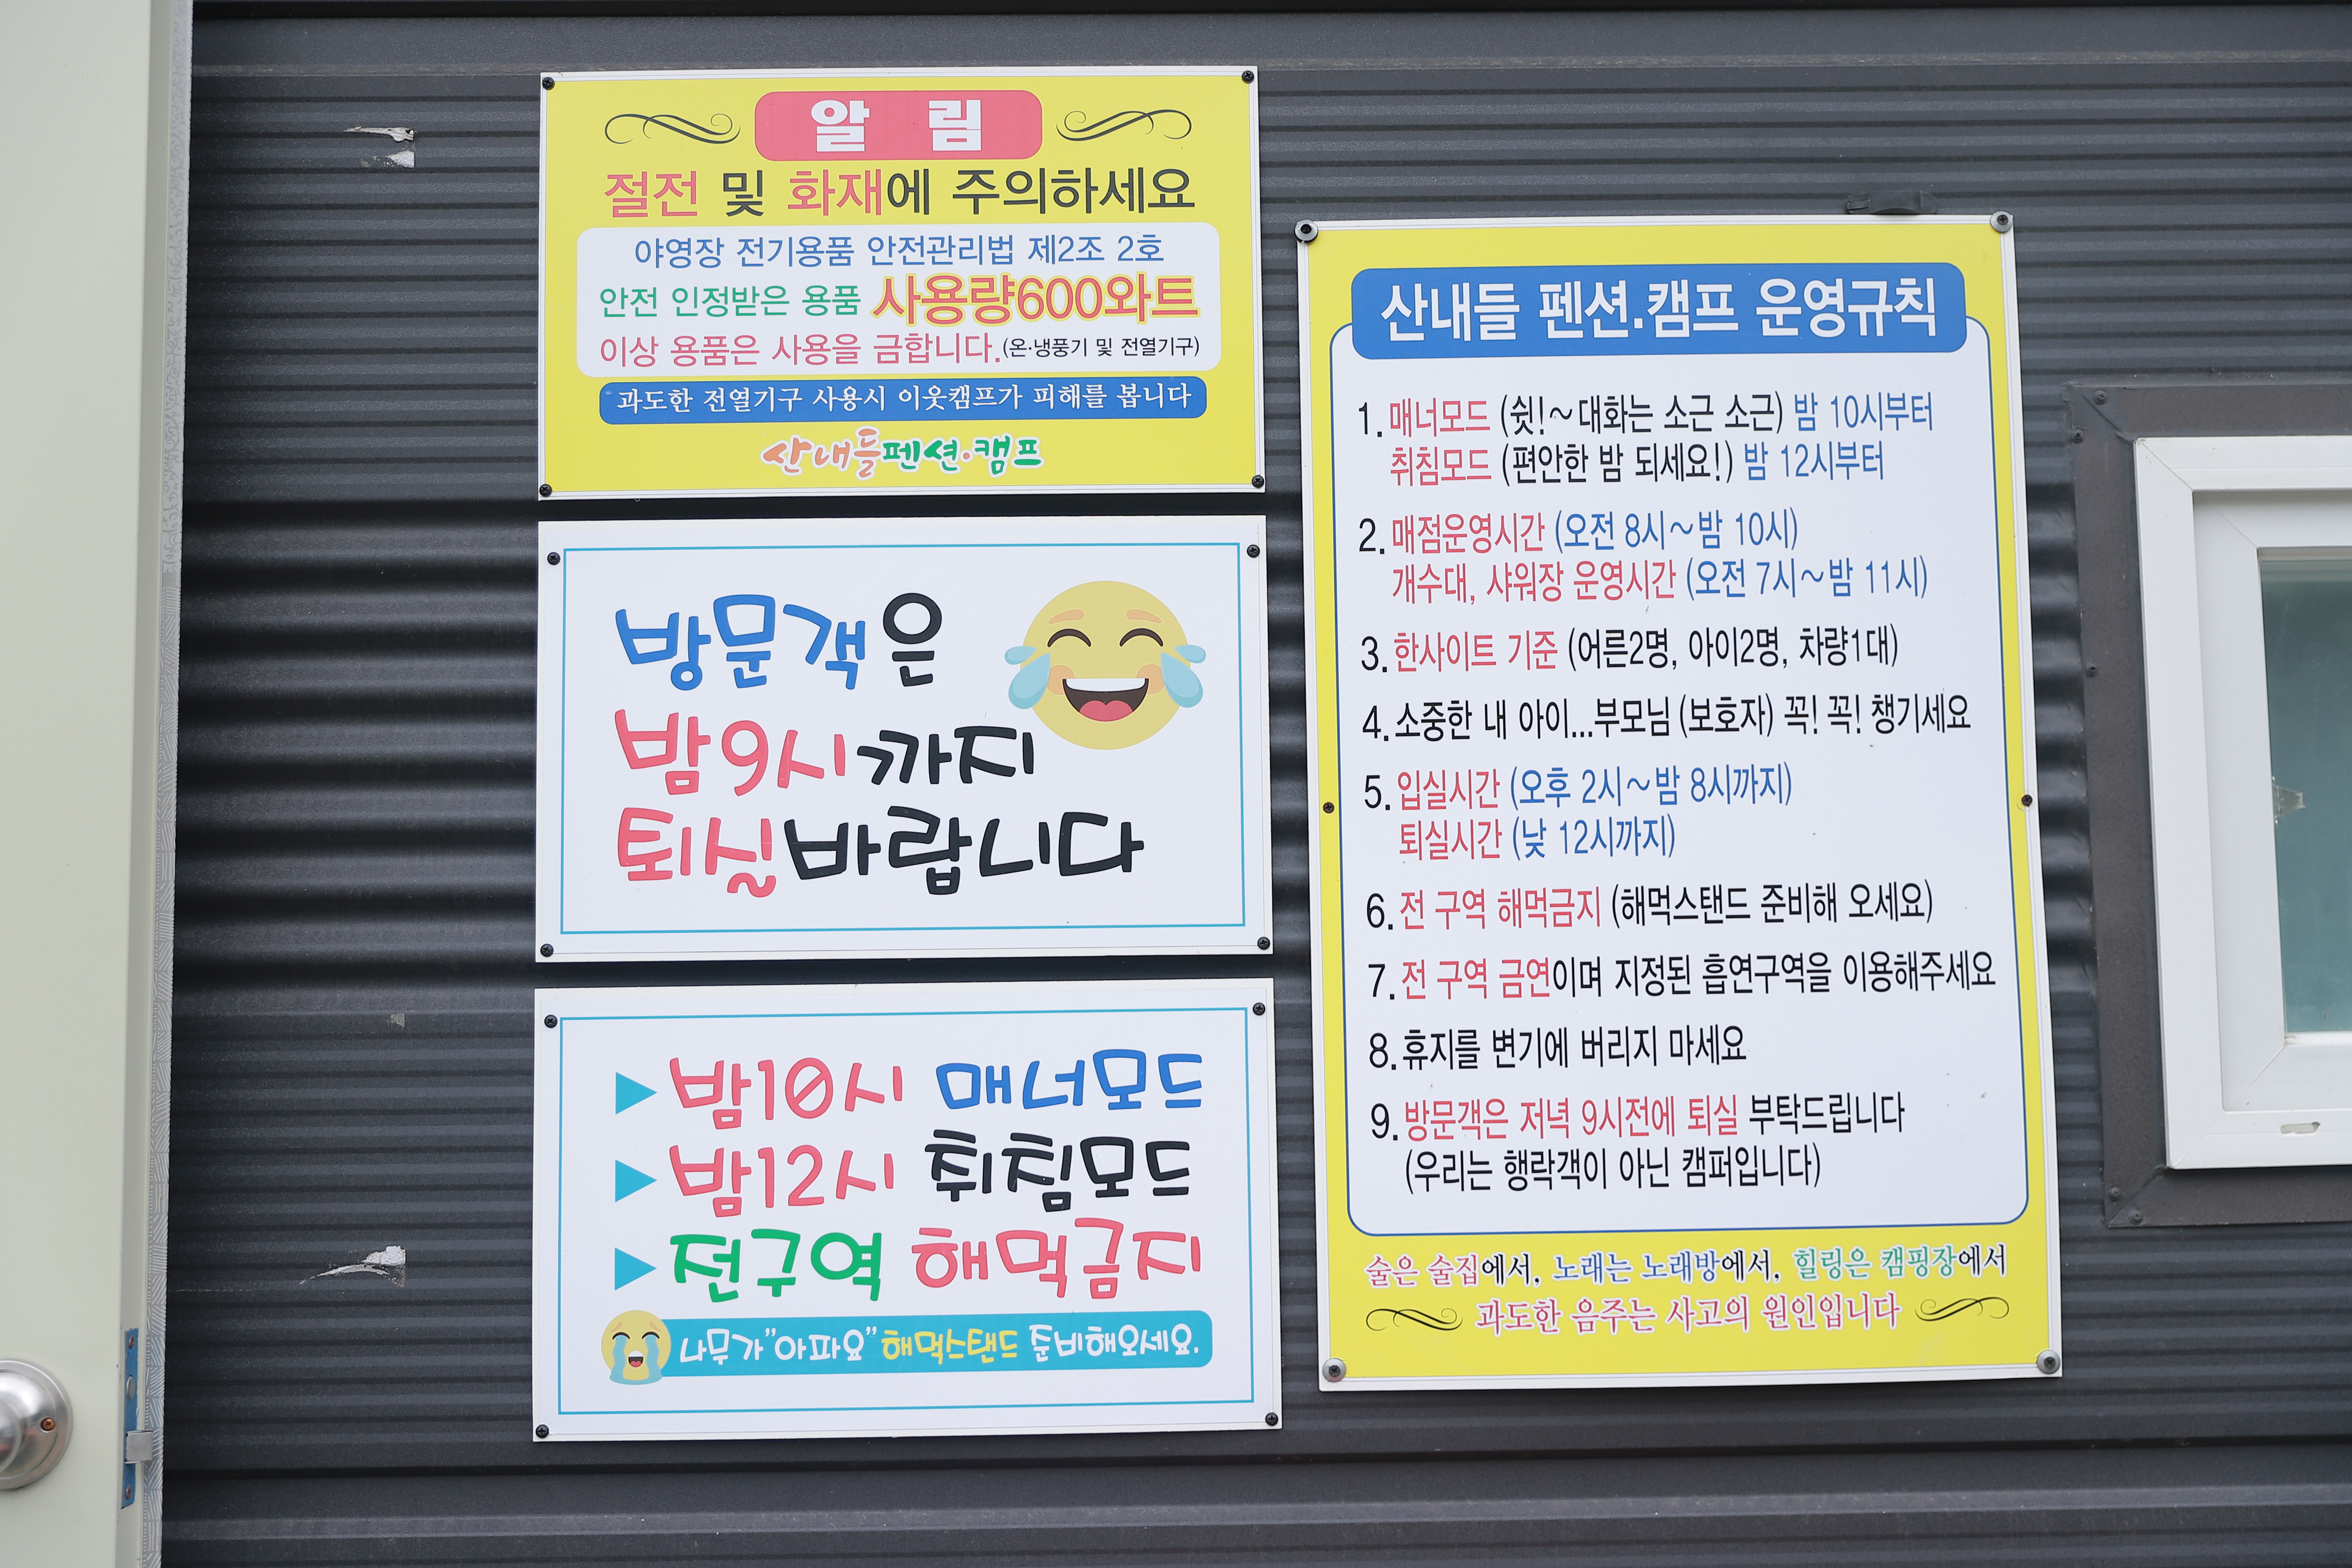 알 림
절전 및 화재에 주의하세요
야영장 전기용품 안전관리법 제2조 2호
안전 인정받은 용품 사용량600와트
이상 용품은 사용을 금합니다.(온·냉풍기 및 전열기구)
과도한 전열기구 사용시 이웃캠프가 피해를 봅니다
산내들펜션·캠프
방문객은
밤9시까지
퇴실바랍니다
▶밤10시 매너모드
▶밤12시 취침모드
▶전구역 해먹금지
나무가"아파요" 해먹스탠드 준비해오세요.
산내들 펜션.캠프 운영규칙
1. 매너모드 (쉿!~대화는 소근 소근) 밤 10시부터
취침모드 (편안한 밤 되세요!) 밤 12시부터
2. 매점운영시간 (오전 8시~밤 10시)
개수대, 샤워장 운영시간 (오전 7시~밤 11시)
3. 한사이트 기준 (어른2명, 아이2명, 차량1대)
4. 소중한 내 아이...부모님 (보호자) 꼭! 꼭! 챙기세요
5. 입실시간 (오후 2시~밤 8시까지)
퇴실시간 (낮 12시까지)
6. 전 구역 해먹금지 (해먹스탠드 준비해 오세요)
7. 전 구역 금연이며 지정된 흡연구역을 이용해주세요
8. 휴지를 변기에 버리지 마세요
9. 방문객은 저녁 9시전에 퇴실 부탁드립니다
(우리는 행락객이 아닌 캠퍼입니다)
술은 술집에서, 노래는 노래방에서, 힐링은 캠핑장에서
과도한 음주는 사고의 원인입니다